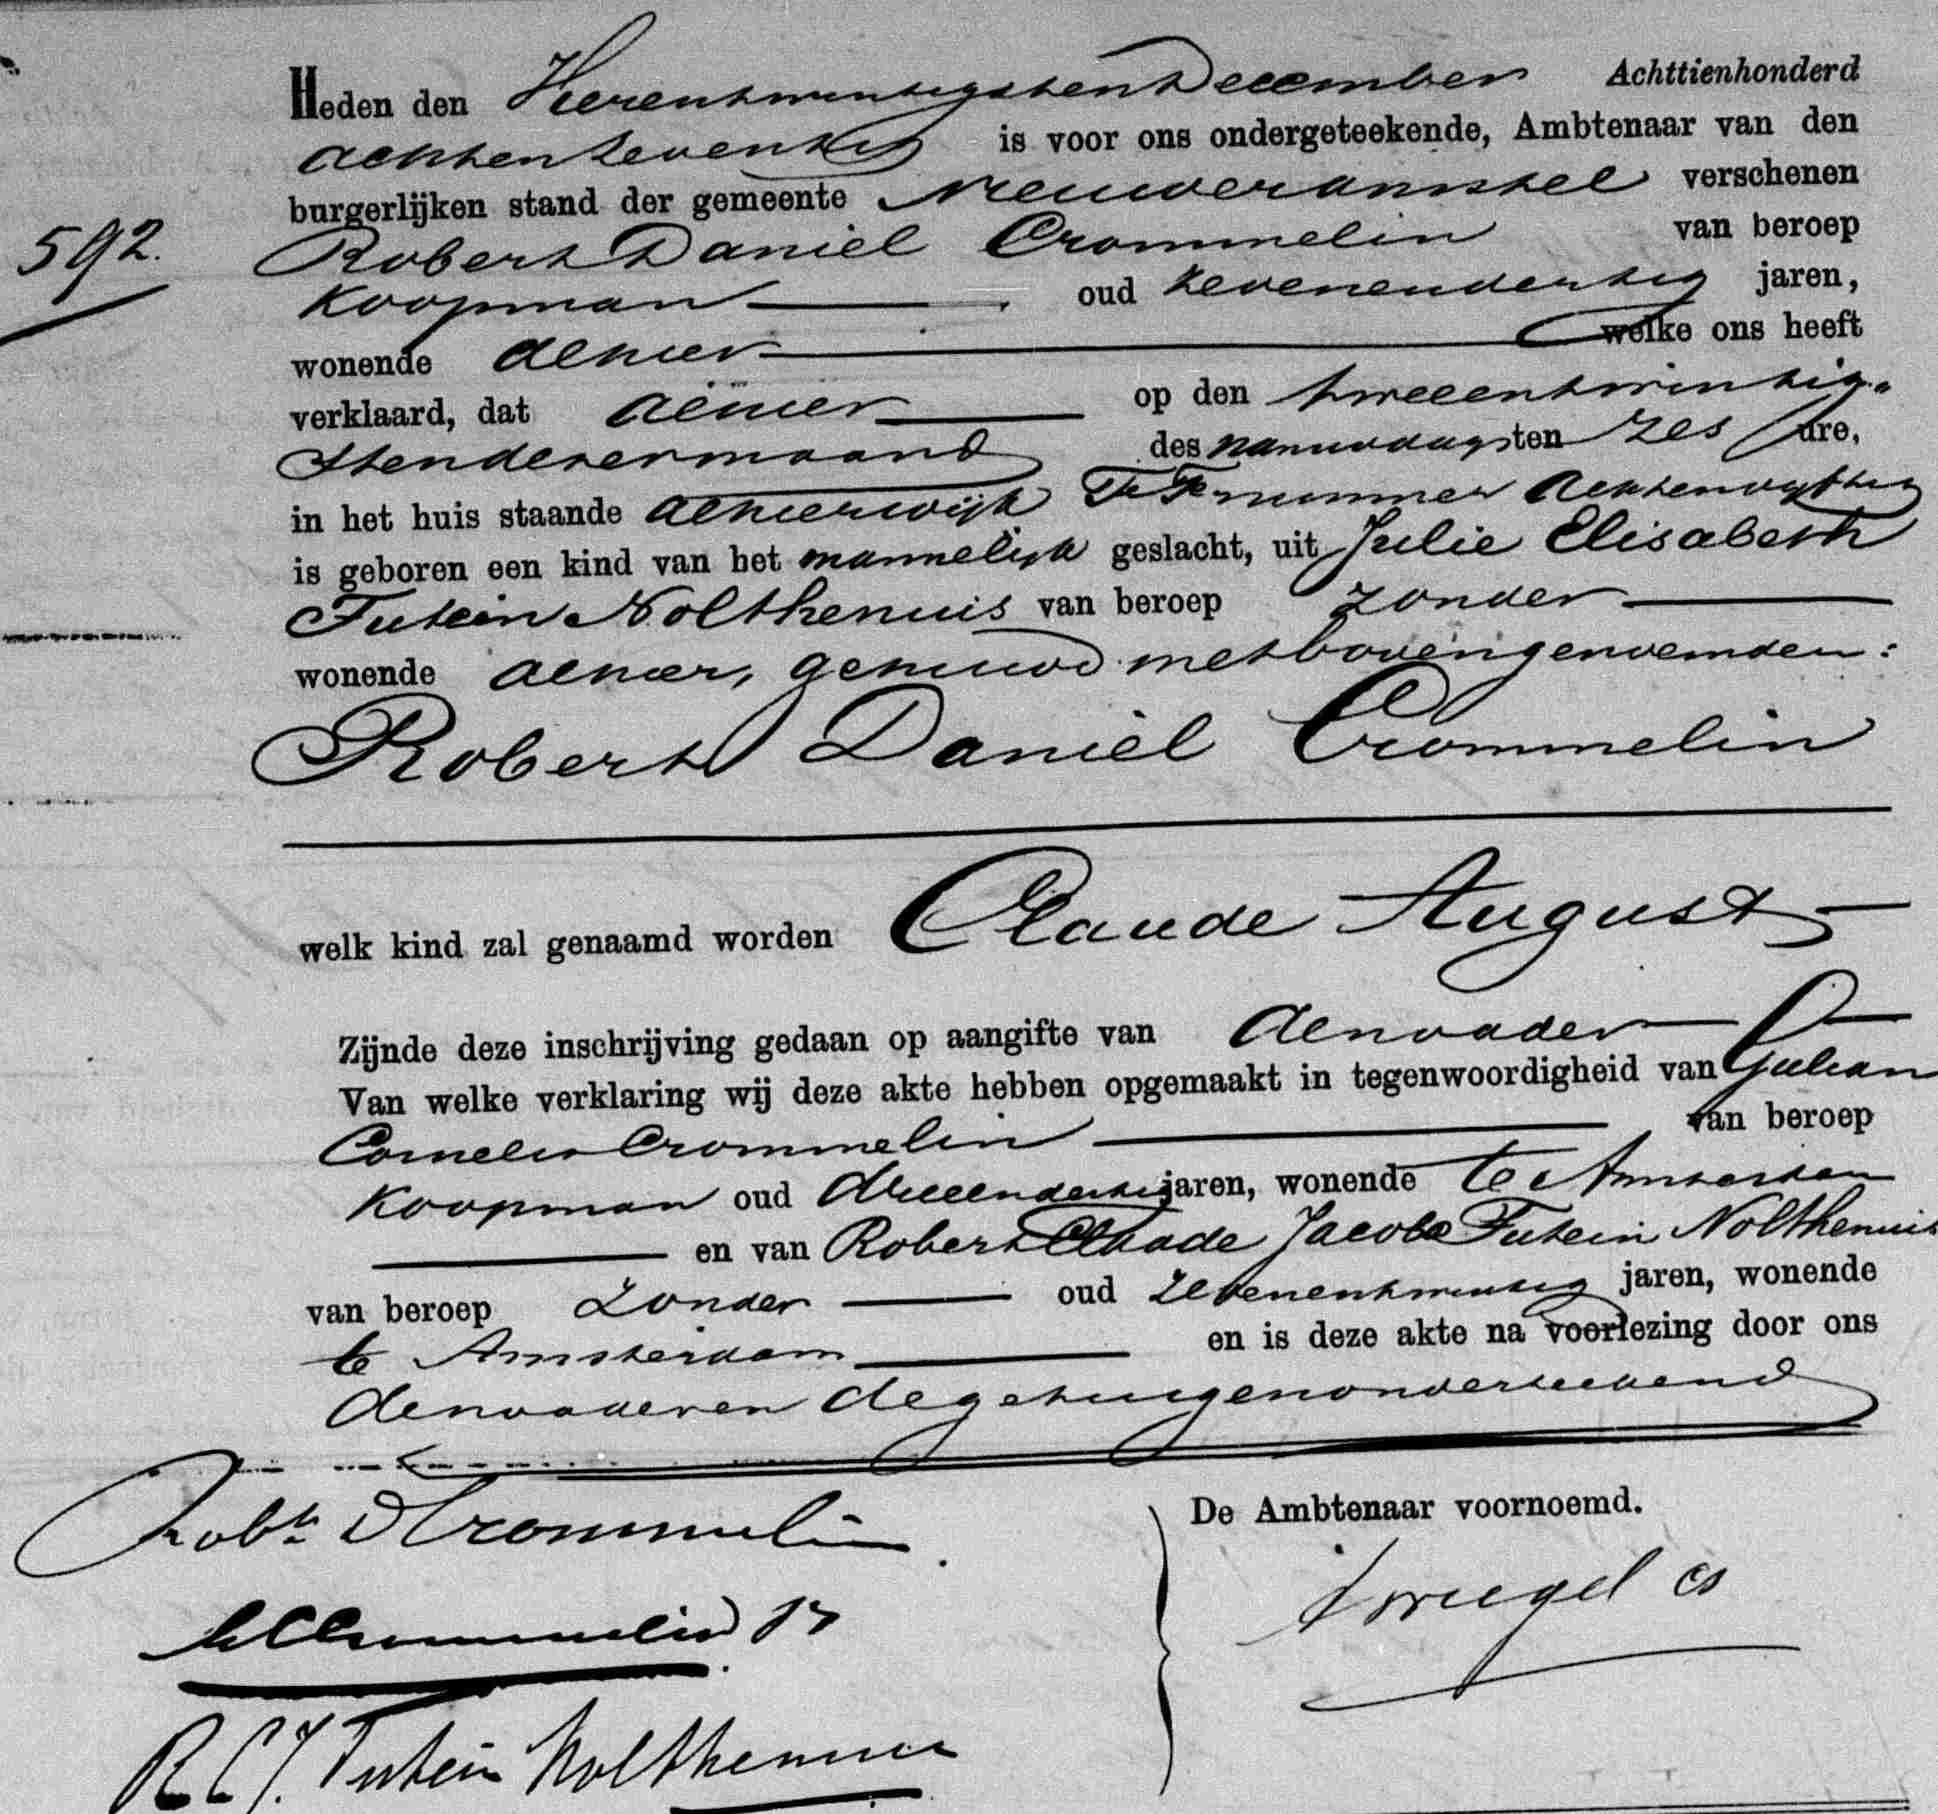 Heden den Vierentwintigsten December Achttienhonderd
achtenzeventig is voor ons ondergeteekende, Ambtenaar van den
burgerlijken stand der gemeente Nieuweramstel verschenen
592.
Robert Daniel Crommelin van beroep
Koopman oud zevenendertig jaren,
wonende alhier welke ons heeft
verklaard, dat alhier op den tweeentwintig-
sten dezer maand des namiddags ten zes ure,
in het huis staande alhier wijk FF nummer achtenvyftig
is geboren een kind van het mannelijk geslacht, uit Julie Elisabeth
Futein Nolthenius van beroep zonder
wonende alhier, gehuwd met bovengenoemden:
Robert Daniel Crommelin
welk kind zal genaamd worden Claude August
Zijnde deze inschrijving gedaan op aangifte van den vader
Van welke verklaring wij deze akte hebben opgemaakt in tegenwoordigheid van Gulian
Cornelis Crommelin van beroep
Koopman oud drieendertig jaren, wonende te Amsterdam
en van Robert Claude Jacob Futein Nolthenius
van beroep zonder oud zevenentwintig jaren, wonende
te Amsterdam en is deze akte na voorlezing door ons
den vader en de getuigen onderteekend
Robt. D Crommelin De Ambtenaar voornoemd.
GCCrommelin
R C J. Futein Nolthenius